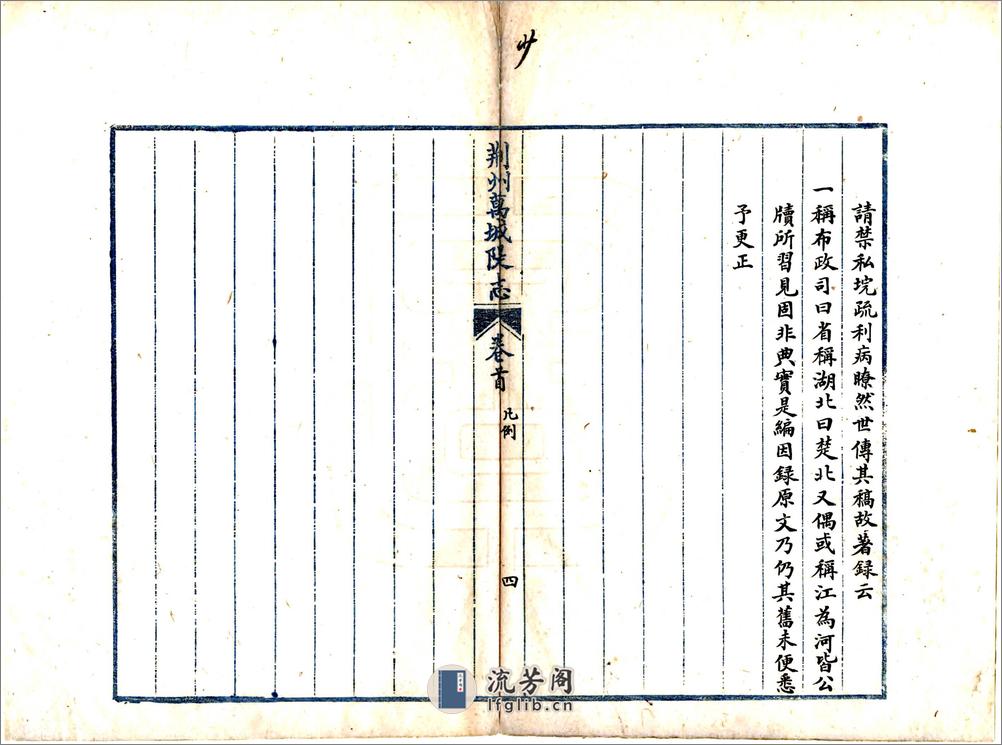 請禁私垸疏利病瞭然世傳其稿故著錄云
一稱布政司曰省稱湖北曰楚北又偶或稱江為河皆公
牘所習見固非典實是編因録原文乃仍其舊未便悉
予更正
荆州萬城隄志
卷首
凡例
四
流芳阁
lfglib.cn